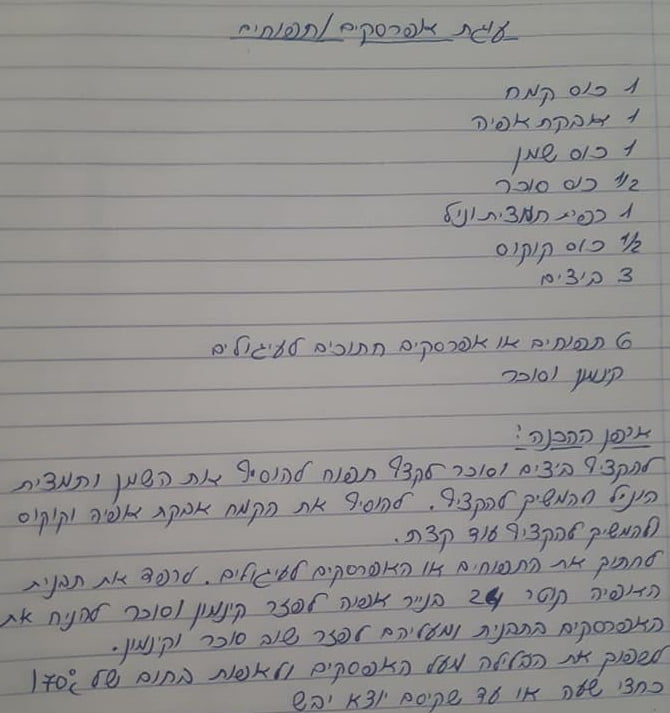 עוגת אפרסקים/תפוחים
1 כוס קמח
1 אבקת אפיה
1 כוס שמן
1/2 כוס סוכר
1 כפית תמצית וניל
1/2 כוס קוקוס
3 ביצים
6 תפוחים או אפרסקים חתוכים לעיגולים
קינמון וסוכר
אופן ההכנה:
להקציף ביצים וסוכר לקצף תפוח להוסיף את השמן ותמצית
הוניל ולהמשיך להקציף. להוסיף את הקמח אבקת אפיה וקוקוס
ולהמשיך להקציף עוד קצת.
לחתוך את התפוחים או האפרסקים לעיגולים. לרפד את תבנית
האופיה קוטר 24 בנייר אפיה לפזר קינמון וסוכר להניח את
האפרסקים בתבנית ומעליהם לפזר שוב סוכר וקינמון.
לשפוך את הבלילה מעל האפסקים ולאפות בחום של 170°c
כחצי שעה או עד שקיסם יוצא יבש